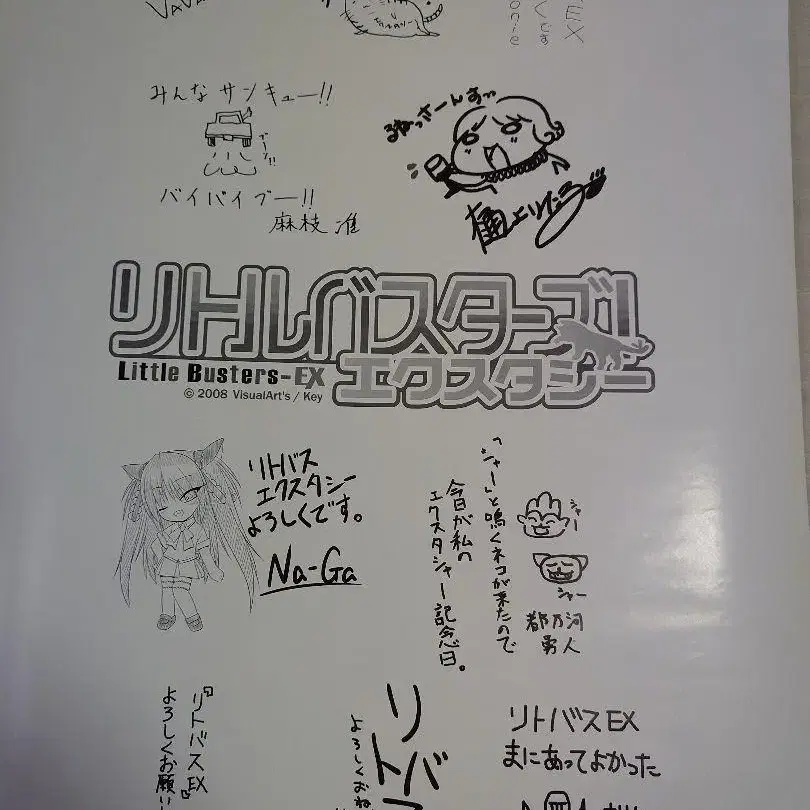 EX
くです
みんな サンキュー!!
バイバイブー!!
麻枝 准
リトルバスターズ!
エクスタシー
Little Busters-EX
© 2008 VisualArt's / Key
リトバス
エクスタシー
よろしくです。
Na-Ga
「シャー」と鳴くネコが来たので
今日が私の
エクスタシャー記念日。
シャー
シャー
都乃河
勇人
『リトバスEX』
よろしくお願い
リトバス
よろしくおね
リトバスEX
まにあってよかった